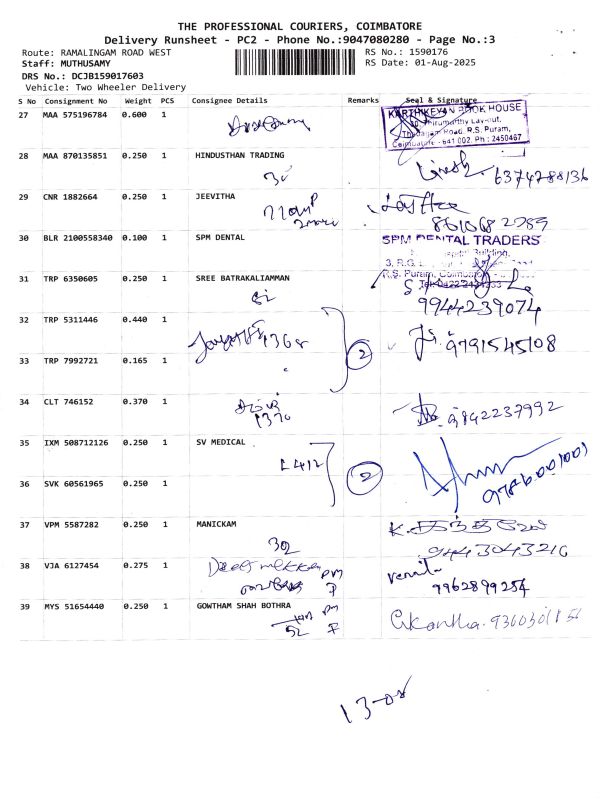 THE PROFESSIONAL COURIERS, COIMBATORE
Delivery Runsheet - PC2 - Phone No.:9047080280 - Page No.:3
Route: RAMALINGAM ROAD WEST
RS No.: 1590176
Staff: MUTHUSAMY
RS Date: 01-Aug-2025
DRS No.: DCJB159017603
Vehicle: Two Wheeler Delivery
S No Consignment No Weight PCS Consignee Details Remarks Seal & Signature
27 MAA 575196784 0.600 1
KARTHIKEYAN BOOK HOUSE
Thirumurthy Lay-out,
Thadagam Road, R.S. Puram,
Coimbatore - 641 002. Ph : 2450467
28 MAA 870135851 0.250 1 HINDUSTHAN TRADING
6374288136
29 CNR 1882664 0.250 1 JEEVITHA
30 BLR 2100558340 0.100 1 SPM DENTAL
SPM DENTAL TRADERS
Building,
3, R.G.
R.S. Puram, Coimbatore
31 TRP 6350605 0.250 1 SREE BATRAKALIAMMAN
9944239074
32 TRP 5311446 0.440 1
1368
2
9791545108
33 TRP 7992721 0.165 1
34 CLT 746152 0.370 1
1370
9842237992
35 IXM 508712126 0.250 1 SV MEDICAL
L412
2
36 SVK 60561965 0.250 1
37 VPM 5587282 0.250 1 MANICKAM
302
9443043216
38 VJA 6127454 0.275 1
PM
7
9962899254
39 MYS 51654440 0.250 1 GOWTHAM SHAH BOTHRA
PM
52 7
13-08